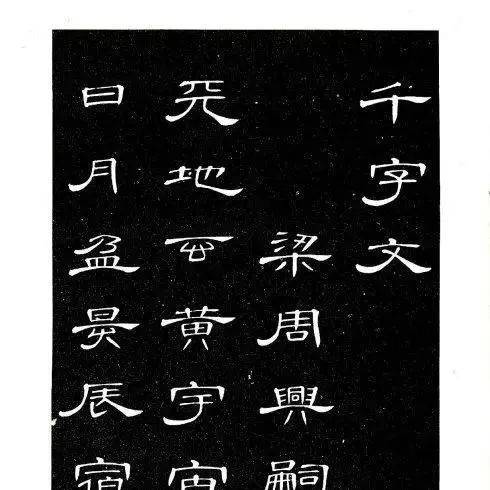 千字文
梁周興嗣
天地玄黄宇宙
日月盈昃辰宿